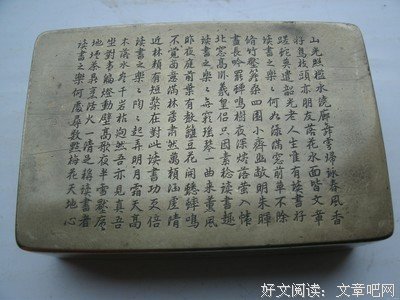 山光照檻水繞廊舞雩歸詠春風香
好鳥枝頭亦朋友落花水面皆文章
蹉跎莫遣韶光老人生惟有讀書好
讀書之樂々何如綠滿窓前草不除
脩竹壓簷桑四圍小齋幽敞明朱暉
晝長吟罷蟬鳴樹夜深燼落螢入幃
北窓高卧羲皇侣只因素稔讀書趣
讀書之樂々無窮瑤琴一曲来薰風
昨夜庭前葉有聲籬豆花開蟋蟀鳴
不覺商意滿林薄蕭然萬籟涵虛清
近床賴有短檠在對此讀書功更倍
讀書之樂々陶々起弄明月霜天高
木落水盡千岩枯迥然吾亦見真吾
坐對韋編燈動壁高歌夜半雪壓廬
地爐茶鼎烹活火一清足稱讀書者
讀書之樂何處尋數點梅花天地心
好文阅读：文章吧网